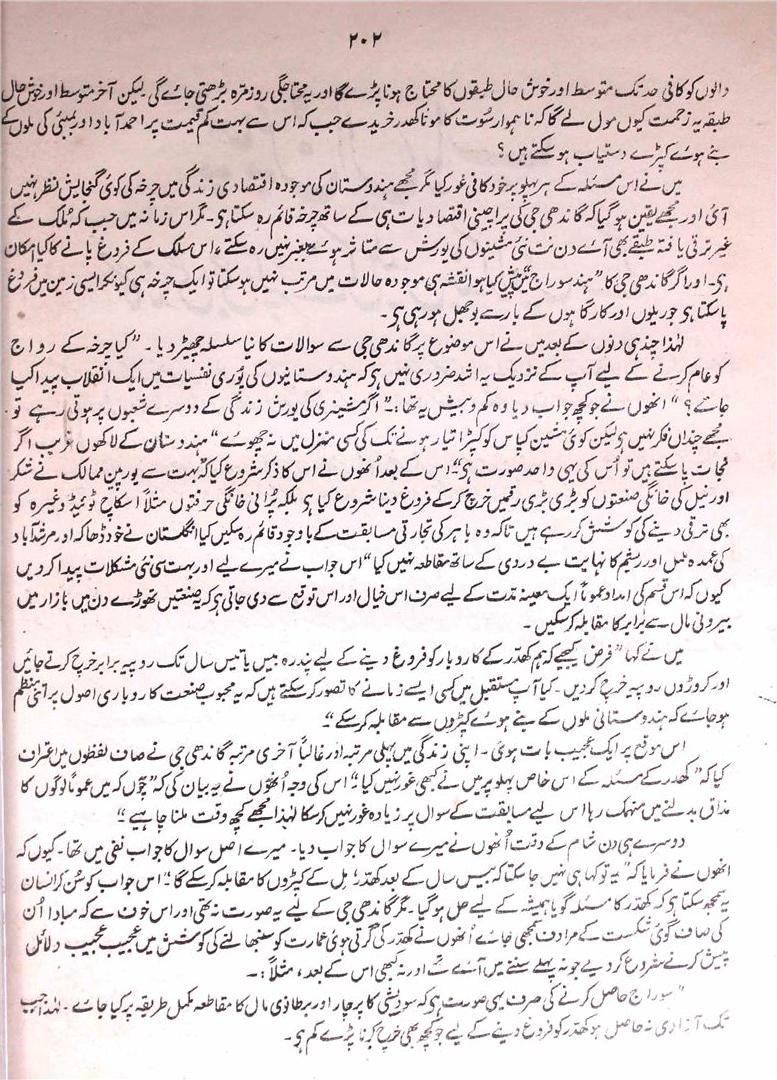 ۲۰۲
دانوں کو کافی حد تک متوسط اور خوش حال طبقوں کا محتاج ہونا پڑے گا اور یہ محتاجگی روزمرہ بڑھتی جائے گی لیکن آخر متوسط اور خوش حال
طبقہ یہ زحمت کیوں مول لے گا کہ ناہموار سُوت کا موٹا کھدر خریدے جب کہ اس سے بہت کم قیمت پر احمد آباد اور بمبئی کی ملوں کے
بنے ہوئے کپڑے دستیاب ہو سکتے ہیں ؟
میں نے اس مسئلہ کے ہر پہلو پر خود کافی غور کیا مگر مجھے ہندوستان کی موجودہ اقتصادی زندگی میں چرخہ کی کوئی گنجایش نظر نہیں
آئی اور مجھے یقین ہو گیا کہ گاندھی جی کی پراچینی اقتصادیات ہی کے ساتھ چرخہ قائم رہ سکتا ہی۔ مگر اس زمانہ میں جب کہ مُلک کے
غیر ترقی یافتہ طبقے بھی آئے دن نت نئی مشینوں کی یورش سے متاثر ہوئے بغیر نہیں رہ سکتے ، اس مسلک کے فروغ پانے کا کیا امکان
ہی۔ اور اگر گاندھی جی کا ”ہند سوراج“ میں پیش کیا ہوا نقشہ ہی موجودہ حالات میں مرتب نہیں ہو سکتا تو ایک چرخہ ہی کیونکر ایسی زمین میں فروغ
پا سکتا ہی جو ریلوں اور کارگاہوں کے بار سے بوجھل ہو رہی ہی۔
لہٰذا چند ہی دنوں کے بعد میں نے اس موضوع پر گاندھی جی سے سوالات کا نیا سلسلہ چھیڑ دیا ۔ ”کیا چرخہ کے رواج
کو عام کرنے کے لیے آپ کے نزدیک یہ اشد ضروری نہیں ہی کہ ہندوستانیوں کی پوری نفسیات میں ایک انقلاب پیدا کیا
جائے ؟ “ انھوں نے جو کچھ جواب دیا وہ کم و بیش یہ تھا :۔ ”اگر مشینری کی یورش زندگی کے دوسرے شعبوں پر ہوتی رہے تو
مجھے چنداں فکر نہیں ہی لیکن کوئی مشین کپاس کو کپڑا تیار ہونے تک کی کسی منزل میں نہ چھوئے “ ہندوستان کے لاکھوں غریب اگر
نجات پا سکتے ہیں تو اُس کی یہی واحد صورت ہی“ اس کے بعد اُنھوں نے اس کا ذکر شروع کیا کہ بہت سے یورپین ممالک نے شکر
اور نیل کی خانگی صنعتوں کو بڑی بڑی رقمیں خرچ کرکے فروغ دینا شروع کیا ہی بلکہ پُرانی خانگی حرفتوں مثلاً اسکاچ ٹوئیڈ وغیرہ کو
بھی ترقی دینے کی کوشش کر رہے ہیں تاکہ وہ باہر کی تجارتی مسابقت کے باوجود قائم رہ سکیں کیا انگلستان نے خود ڈھاکہ اور مرشدآباد
کی عمدہ ململ اور ریشم کا نہایت بے دردی کے ساتھ مقاطعہ نہیں کیا“ اس جواب نے میرے لیے اور بہت سی نئی مشکلات پیدا کر دیں
کیوں کہ اس قسم کی امداد عموماً ایک معینہ مدت کے لیے صرف اس خیال اور اس توقع سے دی جاتی ہی کہ یہ صنعتیں تھوڑے دن میں بازار میں
بیرونی مال سے برابر کا مقابلہ کر سکیں ۔
میں نے کہا ”فرض کیجیے کہ ہم کھدر کے کاروبار کو فروغ دینے کے لیے پندرہ بیس یا تیس سال تک روپیہ برابر خرچ کرتے جائیں
اور کروڑوں روپیہ خرچ کردیں ۔ کیا آپ مستقبل میں کسی ایسے زمانے کا تصور کر سکتے ہیں کہ یہ محبوب صنعت کاروباری اصول پر اتنی منظم
ہو جائے کہ ہندوستانی ملوں کے بنے ہوئے کپڑوں سے مقابلہ کر سکے“۔
اس موقع پر ایک عجیب بات ہوئی ۔ اپنی زندگی میں پہلی مرتبہ اور غالباً آخری مرتبہ گاندھی جی نے صاف لفظوں میں اعتراف
کیا کہ ”کھدر کے مسئلہ کے اس خاص پہلو پر میں نے کبھی غور نہیں کیا“ اس کی وجہ اُنھوں نے یہ بیان کی کہ ”چوں کہ میں عموماً لوگوں کا
مذاق بدلنے میں منہمک رہا اس لیے مسابقت کے سوال پر زیادہ غور نہیں کر سکا لہٰذا مجھے کچھ وقت ملنا چاہیے “
دوسرے ہی دن شام کے وقت اُنھوں نے میرے سوال کا جواب دیا۔ میرے اصل سوال کا جواب نفی میں تھا۔ کیوں کہ
انھوں نے فرمایا کہ ”یہ تو کہا ہی نہیں جا سکتا کہ بیس سال کے بعد کھدر، مل کے کپڑوں کا مقابلہ کر سکے گا“ اس جواب کو سُن کر انسان
یہ سمجھ سکتا ہی کہ کھدر کا مسئلہ گویا ہمیشہ کے لیے حل ہو گیا۔ مگر گاندھی جی کے لیے یہ صورت نہ تھی اور اس خوف سے کہ مبادا اُن
کی صاف گوئی شکست کے مرادف سمجھی جائے اُنھوں نے کھدر کی گرتی ہوئی عمارت کو سنبھالنے کی کوشش میں عجیب عجیب دلائل
پیش کرنے شروع کر دیے جو نہ پہلے سننے میں آئے تھے اور نہ کبھی اس کے بعد ، مثلاً :۔
”سوراج حاصل کرنے کی صرف یہی صورت ہی کہ سودیشی کا پرچار اور برطانوی مال کا مقاطعہ مکمل طریقہ پر کیا جائے ۔ لہٰذا جب
تک آزادی نہ حاصل ہو کھدر کو فروغ دینے کے لیے جو کچھ بھی خرچ کرنا پڑے کم ہی ۔